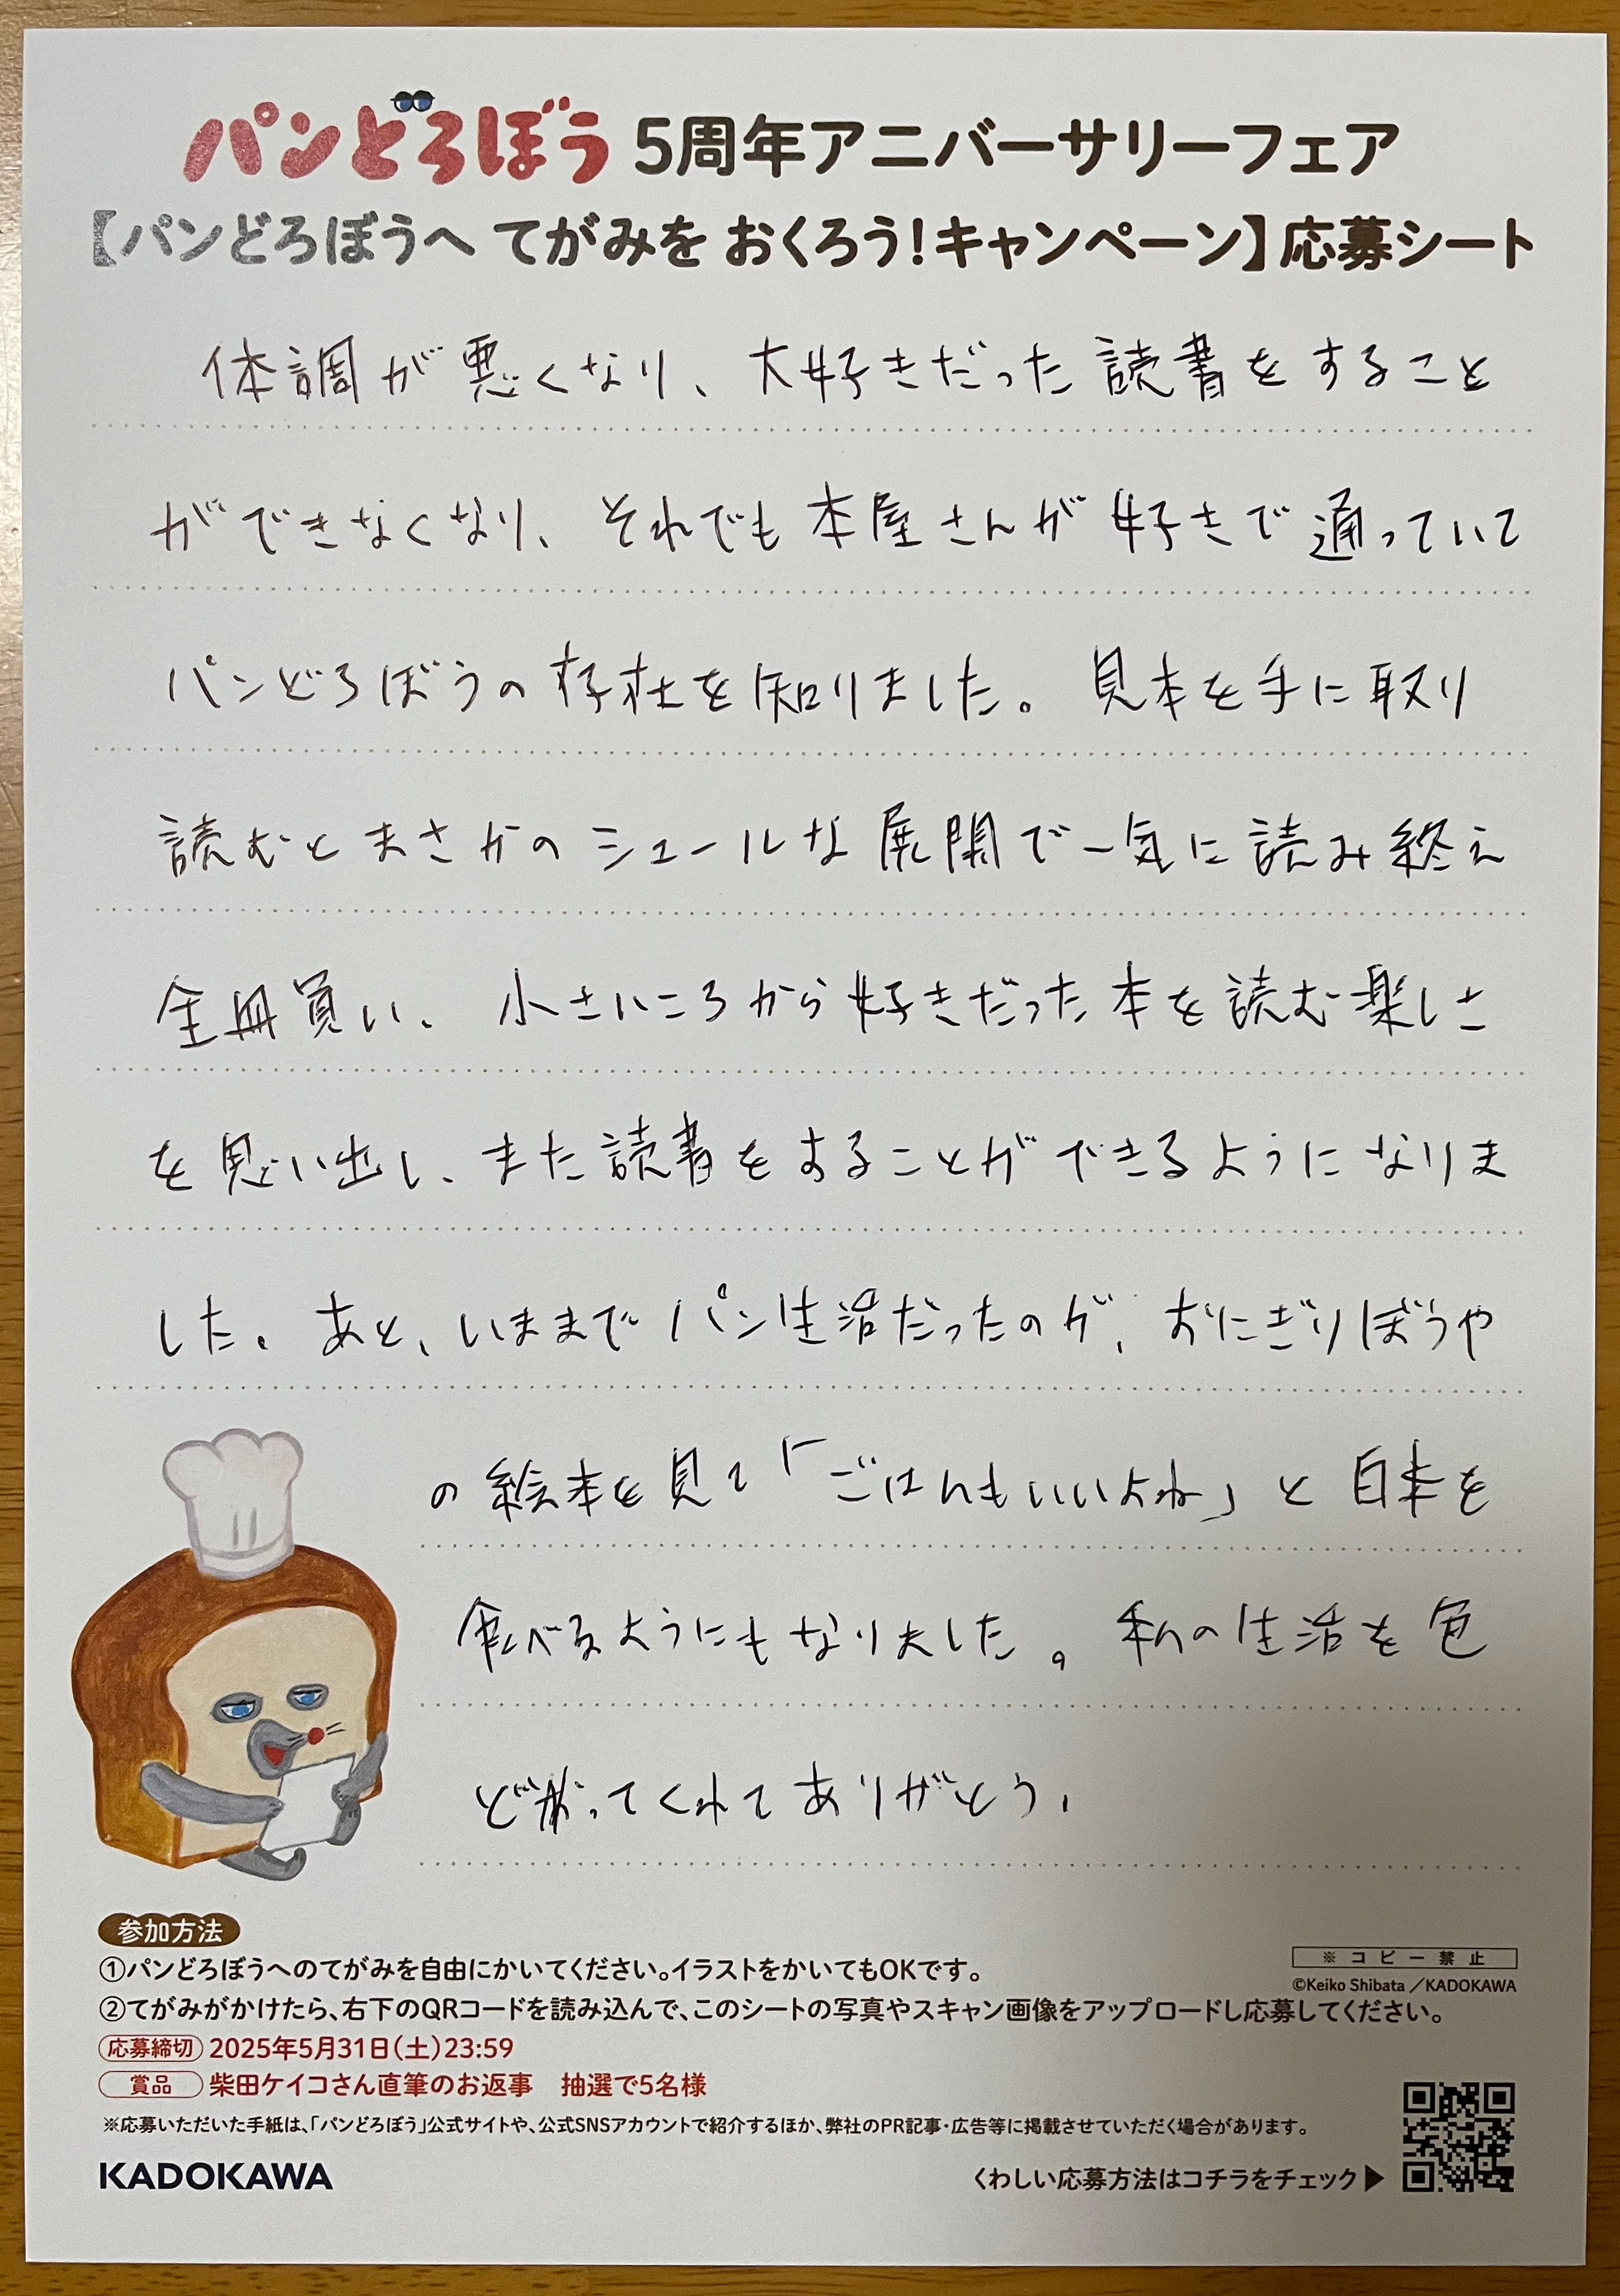 パンどろぼう 5周年アニバーサリーフェア
【パンどろぼうへ てがみを おくろう!キャンペーン】応募シート
体調が悪くなり、大好きだった読書をすること
ができなくなり、それでも本屋さんが好きで通っていて
パンどろぼうの存在を知りました。見本を手に取り
読むとまさかのシュールな展開で一気に読み終え
全冊買い、小さいころから好きだった本を読む楽しさ
を思い出し、また読書をすることができるようになりま
した。あと、いままでパン生活だったのが、おにぎりぼうや
の絵本を見て「ごはんもいいよね」と日本を
食べるようにもなりました。私の生活を色
どってくれてありがとう、
参加方法
①パンどろぼうへのてがみを自由にかいてください。イラストをかいてもOKです。
※コピー禁止
©Keiko Shibata/KADOKAWA
②てがみがかけたら、右下のQRコードを読み込んで、このシートの写真やスキャン画像をアップロードし応募してください。
応募締切 2025年5月31日(土)23:59
賞品 柴田ケイコさん直筆のお返事 抽選で5名様
※応募いただいた手紙は、「パンどろぼう」公式サイトや、公式SNSアカウントで紹介するほか、弊社のPR記事・広告等に掲載させていただく場合があります。
KADOKAWA
くわしい応募方法はコチラをチェック▶